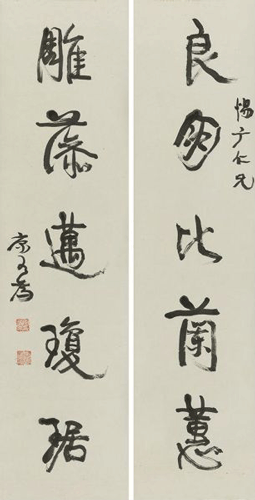 惕广仁兄
良朋比蘭蕙
雕藻邁瓊琚
康有為